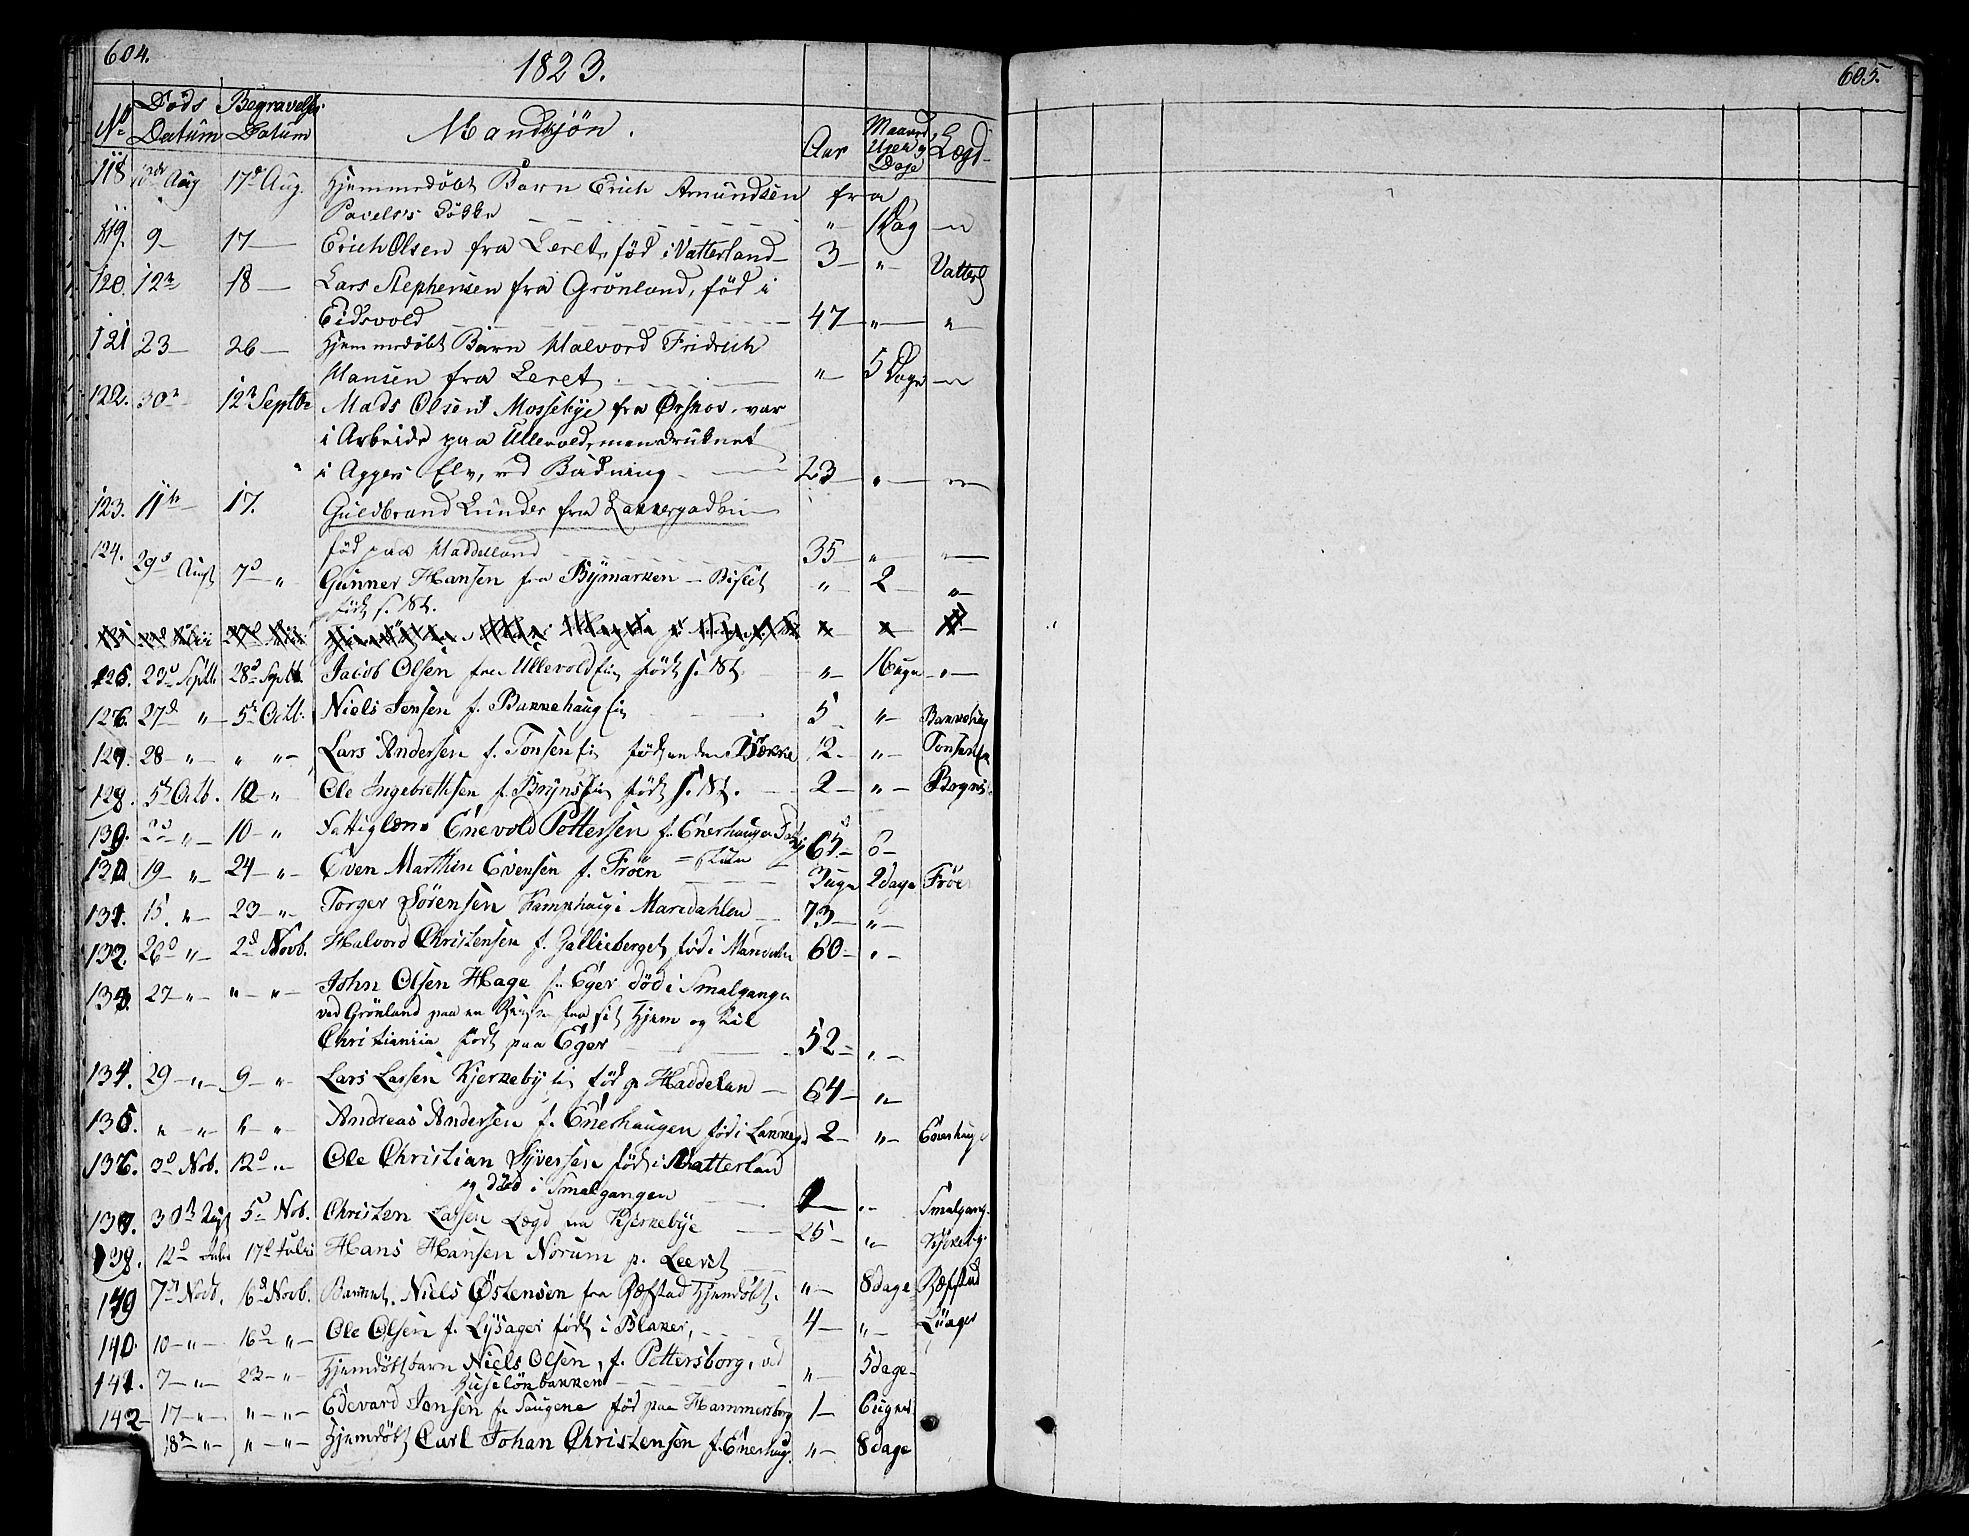 604.
1823.
605.
No Döds Datum Begravelses Datum Mandkjön. Aar Maaned Uger og Dage Lægd
118 Aug 17d Aug. Hjemmedöbt Barn Erich Amundsen fra
Pavels's Lökke " 1 Dag "
119. 9 17 Erich Olsen fra Leret, föd i Vatterland 3 " Vatterl
120. 12 18 Lars Stephensen fra Grönland, föd i
Eidsvold 47 " "
121 23 26 Hjemmedöbt Barn Halvord Fridrich
Hansen fra Leret " 5 Dage "
122. 30 12 Septbr Mads Olsen Mossebye fra Örskov, var
i Arbeide paa Ullevold, men druknet
i Aggers Elv, ved Badning 23 " "
123. 11te 17. Guldbrand Lunder fra Lakkegaden
föd paa Haddelland 35 " "
124. 29d Augst 7d " Gunner Hansen fra Bymarken Bislet " 2 "
födt s. St.
125. 23d Septb. 28d Septb. Jacob Olsen fra Ullevold Ei födt s. St. " 16 uger "
126. 27d " 5te Octb. Niels Jensen f. Bakkehaug Ei 5 " Bakkehaug
127. 28 " " " Lars Andersen f. Tonsen Ei föd under Bække 12 " Tonsen Ei
128. 5te Octb. 12 " Ole Ingebrethsen f. Bryns Ei födt s. St. 2 " Bryns
139. 2d " 10 " Fattiglem Enevold Pettersen f. Enerhaugen 65
130 19 " 24 " Even Marthin Evensen f. Fröen 3 uger 2 dage Fröen
131. 15. " 23 " Torger Sörensen Kamphaug i Maredahlen 73 "
132. 26d " 2d Novb. Halvord Christensen f. föd i Maredalen 60 "
133. 27 " " " John Olsen Hage f. Eger död i Smalgangen
ved Grönland paa en Reise fra sit Hjem og til
Christiania födt paa Eger 52 "
134. 29 " 9 " Lars Larsen Kjerkeby Ei föd p. Haddelan 64 "
135. " " " " Andreas Andersen f. Enerhaugen föd i Lakkeg 2 " Enerhauge
136. 3d Nob. 12d " Ole Christian Syversen föd i Vatterland
og död i Smalgangen " Smalgang.
137. 30 5d Nob. Christen Larsen Lægd fra Kjerkebye 25 " Kjerkebye
138. 12d Julii 17d Julii Hans Hansen Norum p. Leeret
139 7d Novb. 16d Novb. Barnet Niels Östensen fra Refstad Hjemdöbt. " 8 dage Refstad
140. 10 " 16d " Ole Olsen f. Lysager födt i Blaker, 4 " Lysager
141. 7 " 23 " Hjemdöbt barn Niels Olsen, f. Pettersborg, ved
Buselökbakken " 5 dage
142 17 " " " Edevard Jonsen fr Saugene föd paa Hammersborg 1 6 uger
18d " " " Hjemdöbt Carl Johan Christensen f. Enerhaug. " 8 dage